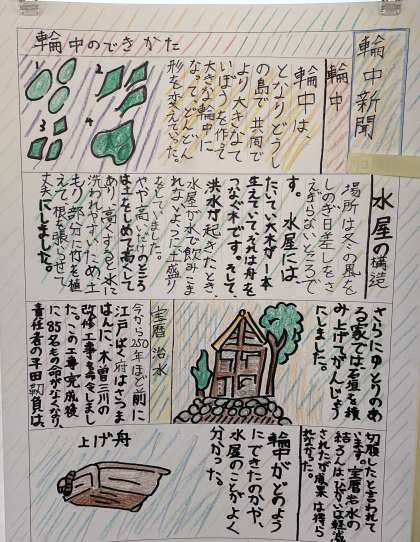 輪中新聞
輪中のできかた
1
2
3
4
輪中
輪中は
となりどうし
の島で共同で
より大きなて
いぼうを作って
大きな輪中に
なって、どんどん
形を変えていった。
水屋の構造
場所は冬の風を
しのぎ日差しをさ
えぎらないところで
す。水屋には、
たいてい大木が一本
生えていて、それは舟を
つなぐ木です。そして、
洪水が起きたとき、
水屋が水で飲みこま
れないように土盛り
をしていました。
やや高いだけのところ
は土を止めて高くして
あり、高くすると水で
洗われやすいため土
もり部分に竹を植
えて、根を張らせて
丈夫にしました。
さらにゆとりのあ
る家では石垣を積
み上げてがんじょう
にしました。
宝暦治水
今から250年ほど前に
江戸ばく府はさつま
はんに、木曽三川の
改修工事を命令しまし
た。この工事完成後
に85名も命がなくなり、
責任者の平田靭負は、
切腹したと言われて
います。宝暦治水の
結ろんはひがいは軽減
されたが成果は得ら
れなかった。
輪中がどのよう
にできたのかや、
水屋のことがよく
分かった。
上げ舟